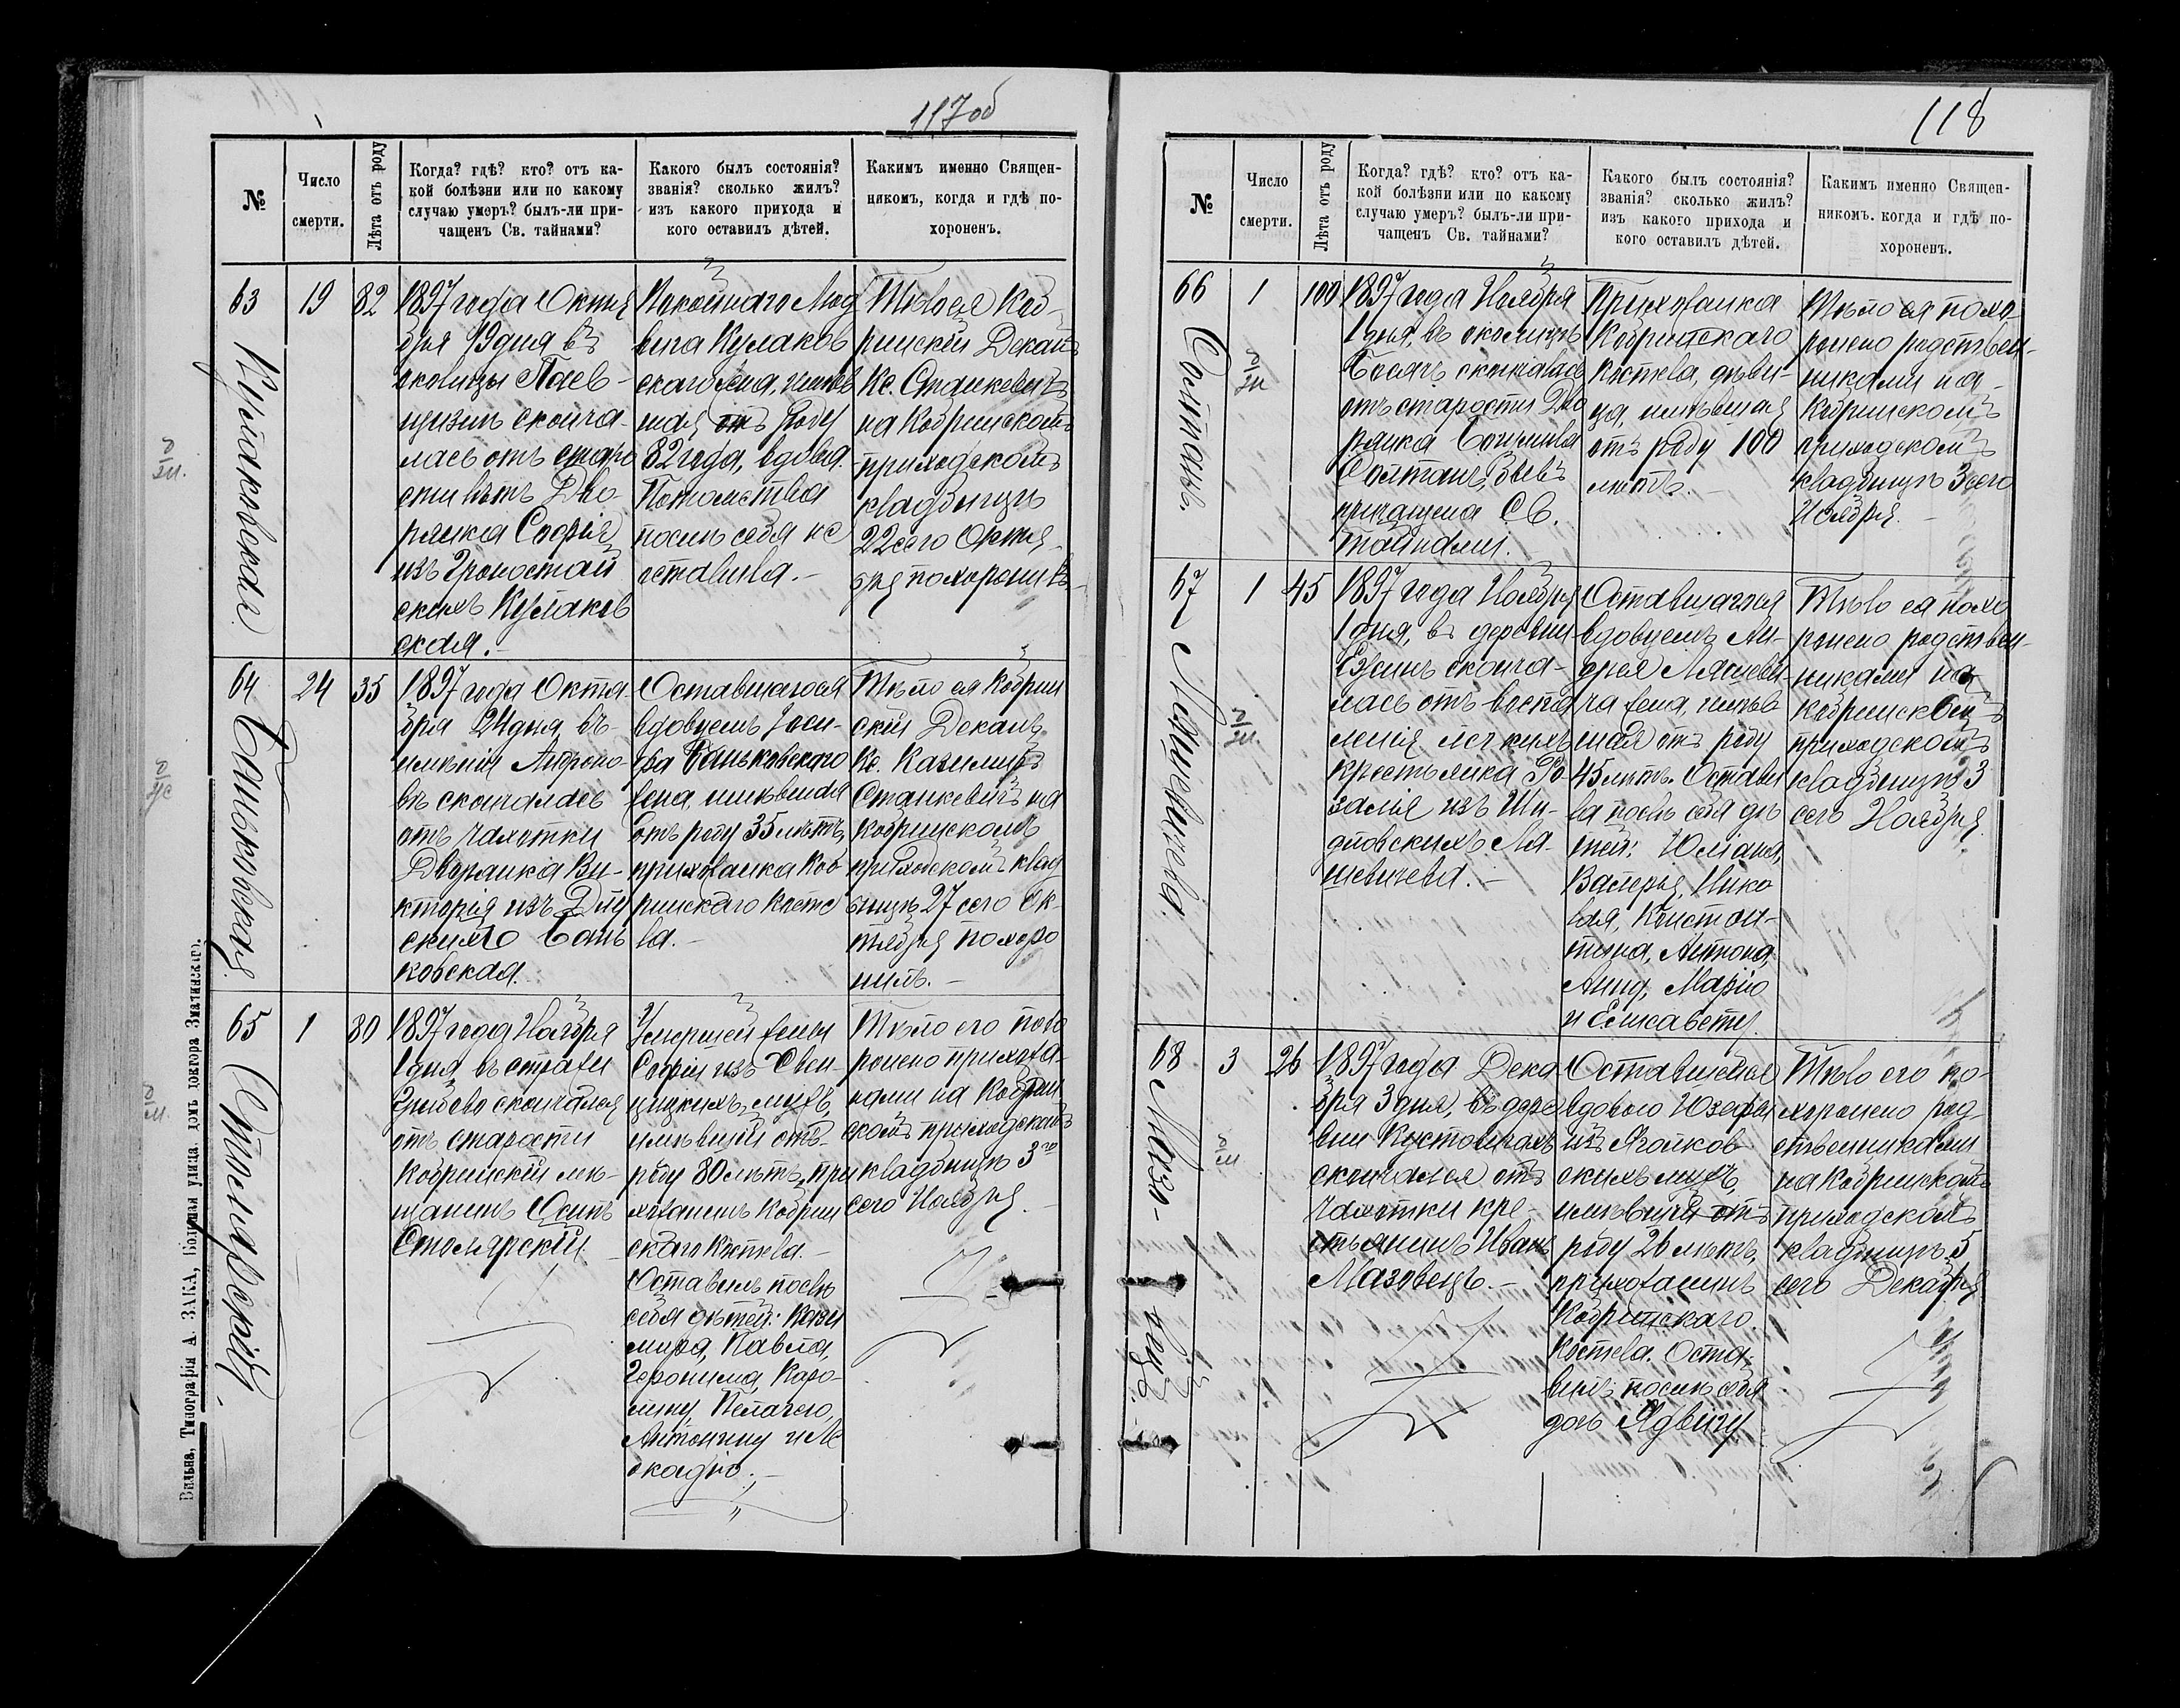 117 об
№
Число смерти.
Лѣта отъ роду
Когда? гдѣ? кто? отъ ка-
кой болѣзни или по какому
случаю умеръ? былъ-ли при-
чащенъ Св. тайнами?
Какого былъ состоянія?
званія? сколько жилъ?
изъ какого прихода и
кого оставилъ дѣтей.
Какимъ именно Священ-
никомъ, когда и гдѣ по-
хороненъ.
63
19
82
Кулаковская
1897 года Октя
бря 19 дня въ
околицы
сконча-
лась отъ старо
сти лѣтъ Дво-
рянка Софія
изъ Гроностай
скихъ Кулаков
ская.
Покойнаго Люд
вига Кулаков
скаго жена, имѣв
шая отъ роду
82 года, вдова.
Потомства
послѣ себя не
оставила.
Тѣло ея Коб-
ринскій Деканъ
Кс. Станкевичъ
на Кобринскомъ
приходскомъ
кладбищѣ
22 сего Октя-
бря похоронилъ.
64
24
35
Баньковская
1897 года Октя
бря 24 дня, въ
имѣніи
въ скончалась
отъ чахотки
Дворянка Ви-
кторія изъ
скихъ Бань
ковская.
Оставшагося
вдовцемъ Іоси-
фа Баньковскаго
жена, имѣвшая
отъ роду 35 лѣтъ,
прихожанка Коб
ринскаго Косте
ла.
Тѣло ея Кобрин
скій Деканъ
Кс. Казимиръ
Станкевичъ на
Кобринскомъ
приходскомъ клад
бищѣ 27 сего Ок-
тября похоро
нилъ.
65
1
80
Столярскій
1897 года Ноября
1 дня въ
скончался
отъ старости
Кобринскій мѣ-
щанинъ Осипъ
Столярскій.
Умершей жены
Софіи изъ
мужъ,
имѣвшій отъ
роду 80 лѣтъ, при
хожанинъ Кобрин
скаго Костела.
Оставилъ послѣ
себя дѣтей: Кази
мира, Павла,
Іеронима, Каро-
лину, Пелагею,
Антонину и Ле
окадію.
Тѣло его похо
ронено прихожа-
нами на Кобрин
скомъ приходскомъ
кладбищѣ 3го
сего Ноября.
Вильна, Типографія А. ЗАКА, Большая улица, домъ доктора
118
№
Число смерти.
Лѣта отъ роду
Когда? гдѣ? кто? отъ ка-
кой болѣзни или по какому
случаю умеръ? былъ-ли при-
чащенъ Св. тайнами?
Какого былъ состоянія?
званія? сколько жилъ?
изъ какого прихода и
кого оставилъ дѣтей.
Какимъ именно Священ-
никомъ. когда и гдѣ по-
хороненъ.
66
1
100
Солтанъ.
1897 года Ноября
1 дня, въ околицѣ
скончалась
отъ старости Дво
рянка
Солтанъ, бывъ
причащена Св.
Тайнами.
Прихожанка
Кобринскаго
Костела, дѣви-
ца, имѣвшая
отъ роду 100
лѣтъ.
Тѣло ея похо
ронено родствен-
никами на
Кобринскомъ
приходскомъ
кладбищѣ 3 сего
Ноября.
67
1
45
Ляшевичева
1897 года Ноября
1 дня, въ деревни
сконча-
лась отъ воспа
ленія легкихъ
крестьянка Ро
залія изъ Ши-
дловскихъ Ля-
шевичева.
Оставшагося
вдовцемъ Ан-
дрея Ляшеви-
ча жена, имѣв
шая отъ роду
45 лѣтъ. Остави
ла послѣ себя дѣ
тей: Юліана,
Валерія, Нико
лая, Констан-
тина, Антона,
Анну, Марію
и Елисавету.
Тѣло ея похо
ронено родствен-
никами на
Кобринскомъ
приходскомъ
кладбищѣ 3
сего Ноября.
68
3
26
Мазо-
вецъ.
1897 года Дека
бря 3 дня, въ дере
вни
скончался отъ
чахотки кре-
стьянинъ Иванъ
Мазовецъ.
Оставшейся
вдовою Юзефы
изъ
скихъ мужъ,
имѣвшій отъ
роду 26 лѣтъ,
прихожанинъ
Кобринскаго
Костела. Оста-
вилъ послѣ себя
дочь Ядвигу.
Тѣло его по-
хоронено род
ственниками
на Кобринскомъ
приходскомъ
кладбищѣ 5
сего Декабря